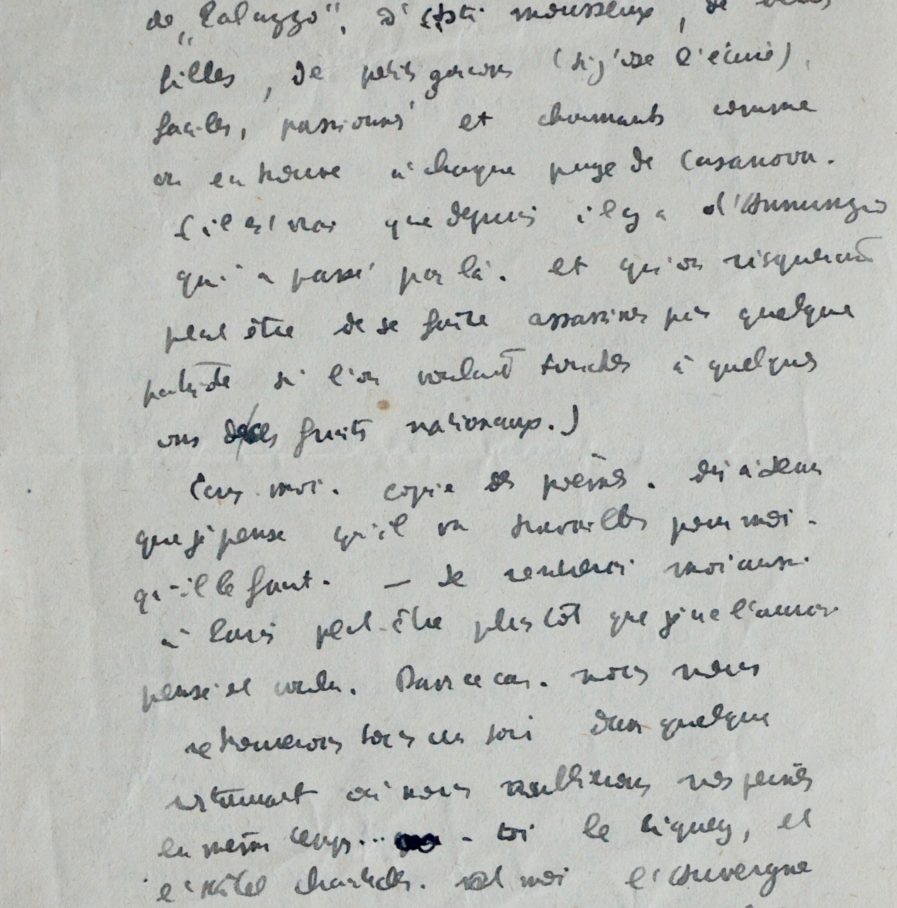 de "Palazzo", d'Asti mousseux, de belles
filles, de petits garçons (si j'ose l'écrire),
faciles, passionnés et charmants comme
on en trouve à chaque page de Casanova.
(il est vrai que depuis il y a d'Annunzio
qui a passé par là. et qu'on risquerait
peut être de se faire assassiner par quelque
patriote si l'on voulait toucher à quelques
uns des fruits nationaux.)
moi. copie des poèmes. dis à
que je pense qu'il va travailler pour moi.
qu'il le faut. — Je rentrerai moi aussi
à Paris peut-être plus tôt que je ne l'aurais
pensé et voulu. Dans ce cas. nous nous
retrouverons tous un soir dans quelque
restaurant où nous oublierons nos peines
en même temps... - toi le et
l'Hôtel . et moi l'Auvergne